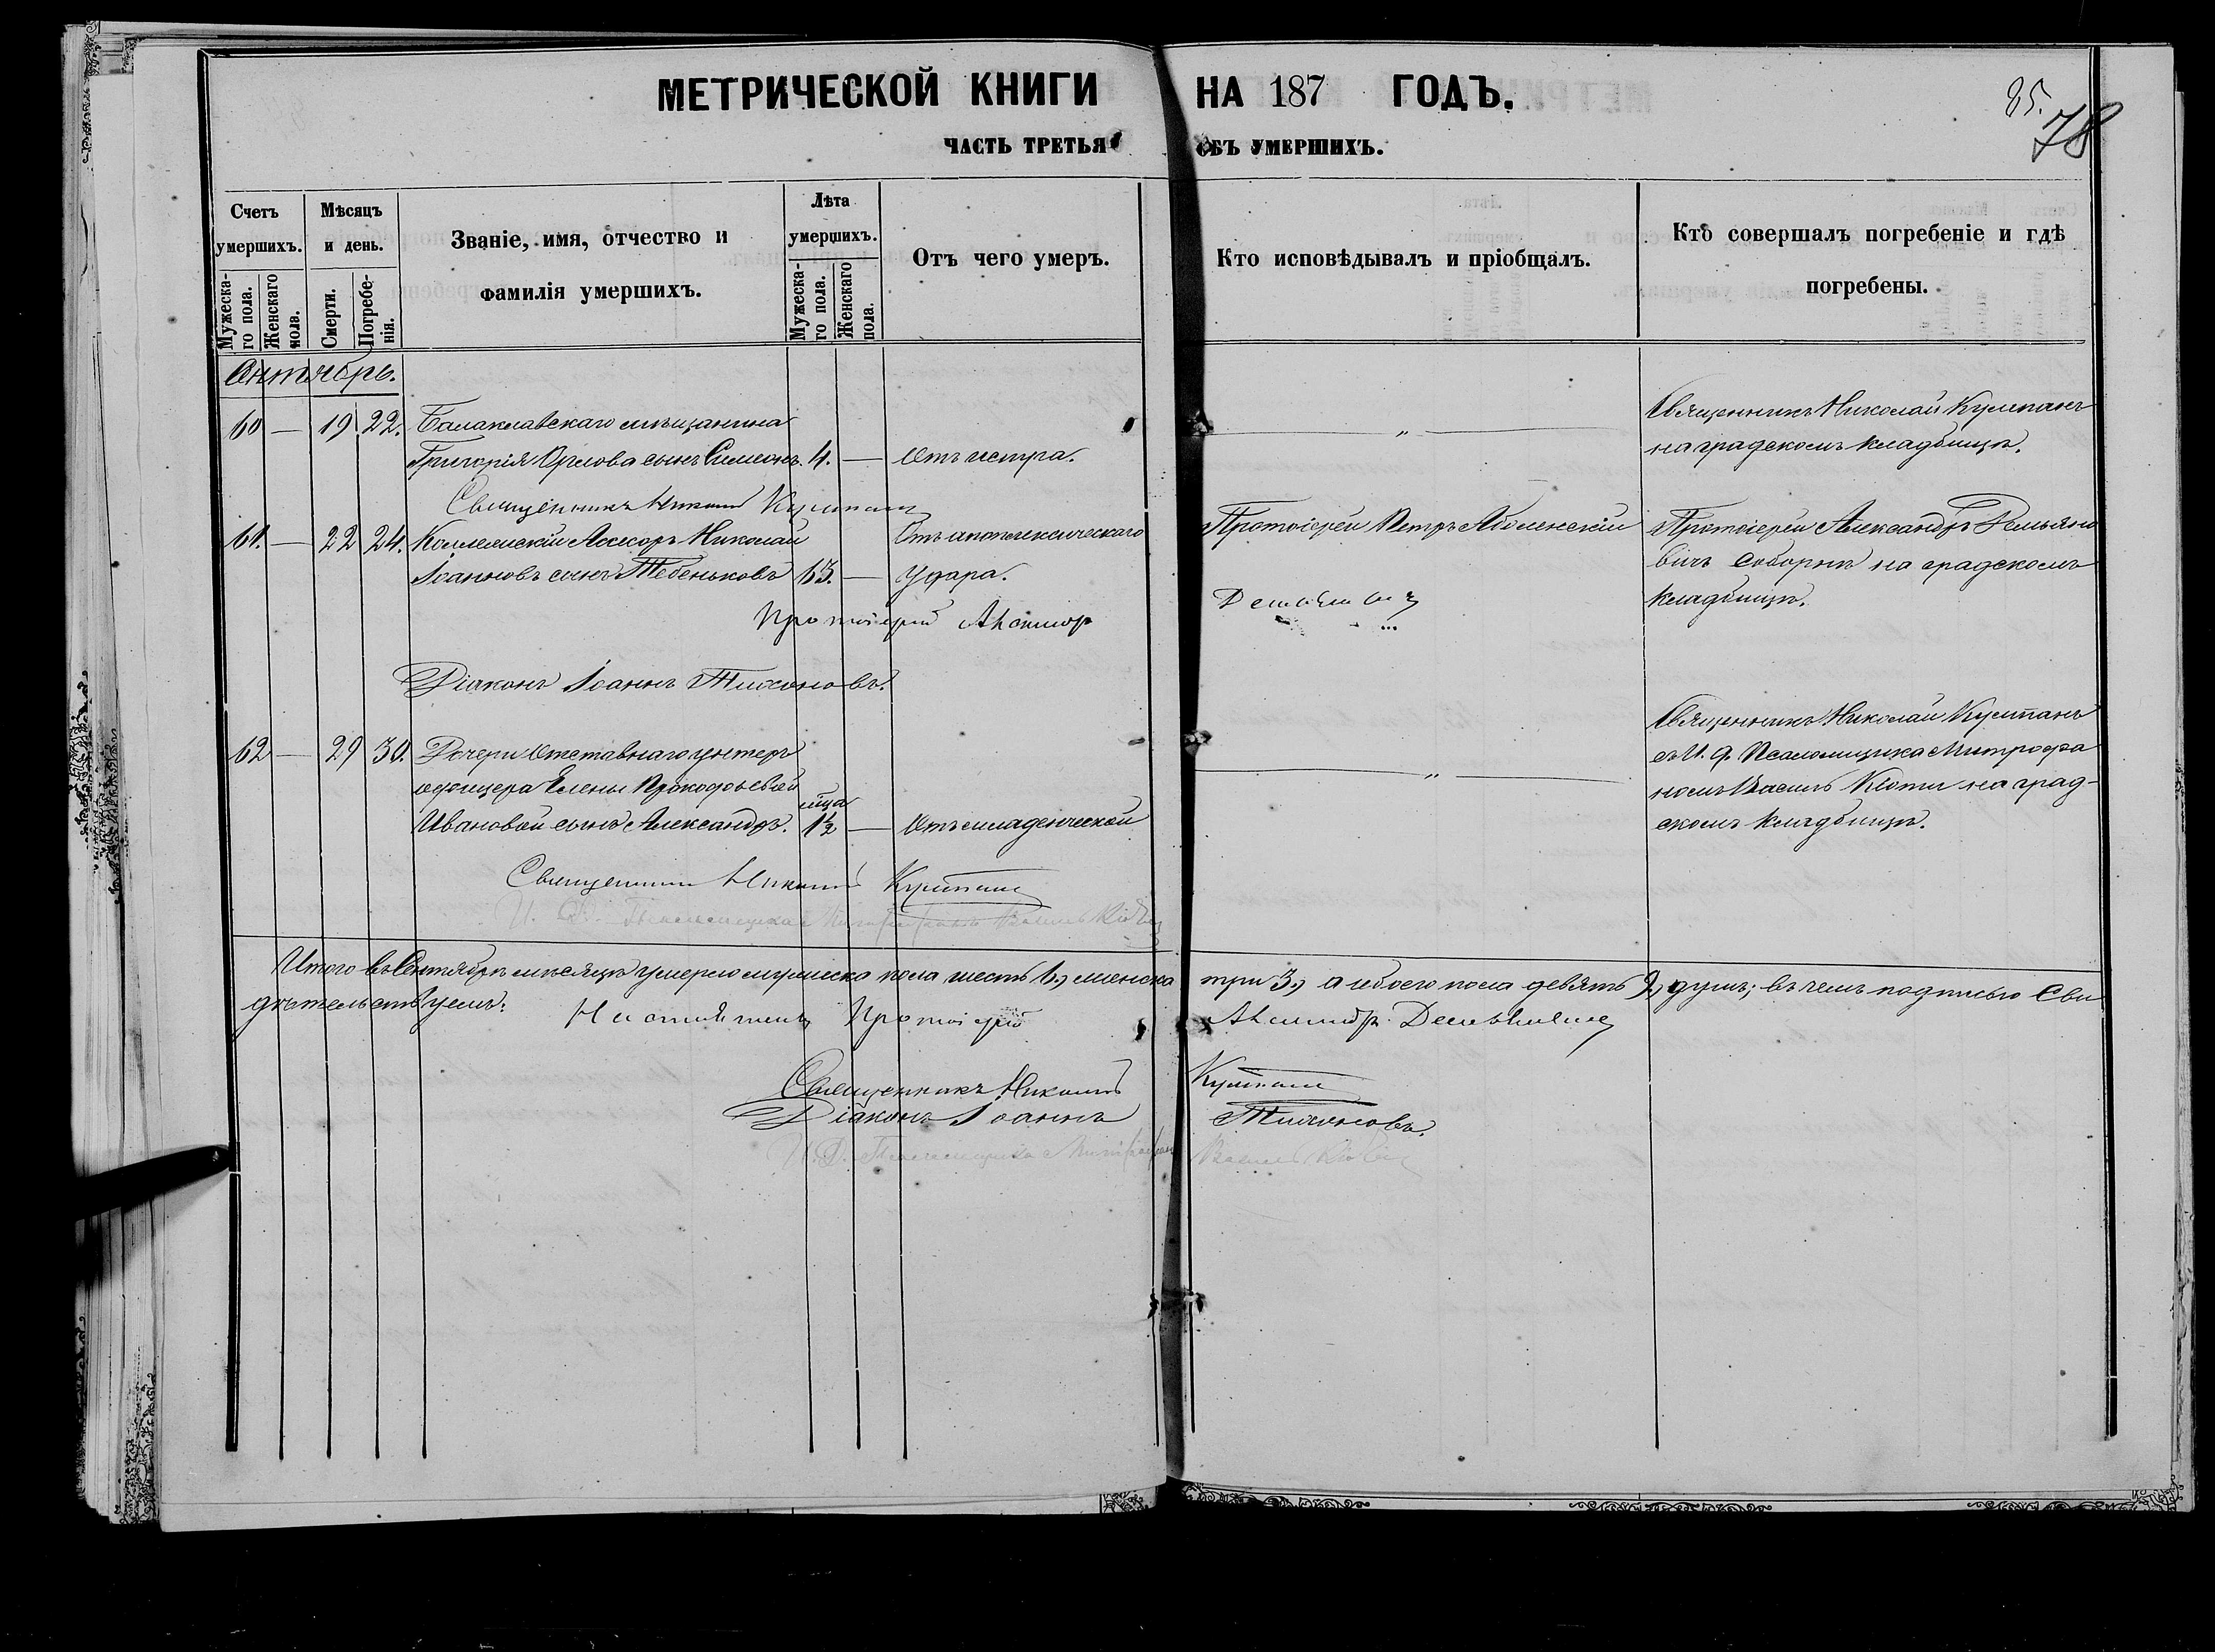 МЕТРИЧЕСКОЙ КНИГИ НА 187 ГОДЪ.
85.
78
ЧАСТЬ ТРЕТЬЯ ОБЪ УМЕРШИХЪ.
Счетъ умершихъ.
Мужеска-го пола.
Женскаго пола.
Мѣсяцъ и день.
Смерти.
Погребе-нія.
Званіе, имя, отчество и
фамилія умершихъ.
Лѣта умершихъ.
Мужеска-го пола.
Женскаго пола.
Отъ чего умеръ.
Кто исповѣдывалъ и пріобщалъ.
Кто совершалъ погребеніе и гдѣ
погребены.
60 — 19 22. Балаклавскаго мѣщанина
Григорія Орлова сынъ Симеонъ. 4. —
Священникъ Николай
на градскомъ кладбищѣ.
Священникъ Николай
61. — 22 24. Коллежскій Асессоръ Николай Отъ апоплексическаго
Іоанновъ сынъ Тебеньковъ 63. — удара.
Протоіерей Петръ
Протоіерей Александръ Демьяно
вичъ соборнѣ на градскомъ
кладбищѣ.
Протоіерей Александръ Демьяновичъ
Діаконъ Іоаннъ Тихоновъ.
62 — 29 30. Дочери отставнаго унтеръ
офицера Елены Прокофьевой
Ивановой сынъ Александръ. мца 1½ — Отъ младенческой
Священникъ Николай
съ И. д. Псаломщика Митрофа
номъ на град-
скомъ кладбищѣ.
Священникъ Николай
И. Д. Псаломщика Митрофанъ
Итого въ Сентябрѣ мѣсяцѣ умерло мужеска пола шесть 6, женска три 3, а обоего пола девять 9, душъ; въ чемъ подписью Сви
дѣтельствуемъ:
Настоятель Протоіерей Александръ Демьяновичъ
Священникъ Николай
Діаконъ Іоаннъ Тихоновъ.
И. Д. Псаломщика Митрофанъ